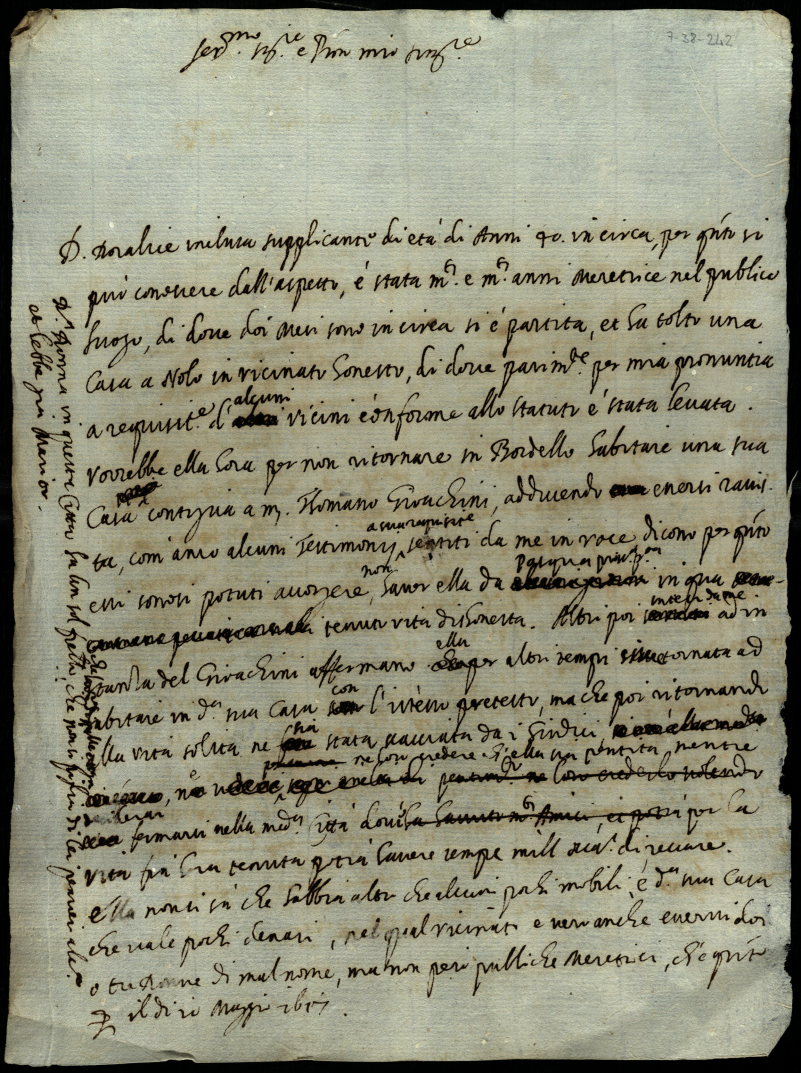 Ser.mo sig.re e Pron mio sing.re
7-38-242
D. Rosalie inclusa supplicante di età di Anni 40. in circa, per q̃nto si
può conoscere dall'aspetto, é stata m.ti e m.ti anni Meretrice nel publico
luogo, di dove doi Mesi sono in circa si é partita, et ha tolto una
Casa a Nolo in vicinato honesto, di dove parim.te per mia pronuntia
a requisit.e d' alcuni vicini conforme allo statuto é stata levata.
Vorrebbe ella hora per non ritornare in Bordello habitare una sua
Casa contigua a m. Romano Gioachini, adducendo enersi ravis-
ta, com'anco alcuni Testimonij a sua requisit.e sentiti da me in voce dicono per q̃nto
essi sonosi potuti accorgere, non haver ella da Pasqua in qua
tenuto vita dishonesta. Altri poi ad in
stanza del Gioachini affermano ella per altri tempi ritornata ad
habitare in d.a sua Casa con l'istesso pretesto, ma che poi ritornando
alla vita solita ne sia stata scacciata da i Giudici
ne credere ch'ella sia pentita mentre
fermarsi nella med.a Città dove per la
vita fin hora tenuta potrà havere sempre mill di peccare.
Ella non si sà che habbia altro che alcuni pochi mobili, é d.a sua Casa
che vale pochi denari, nel qual vicinato e vero anche esservi doi
o tre Donne di mal nome, ma non però publiche Meretrici, ch'é q̃nto
il di 10 Maggio
Donna in questa Città ha un sol fratello, che non si piglia di lei pensiero
et hebbe già Marito.